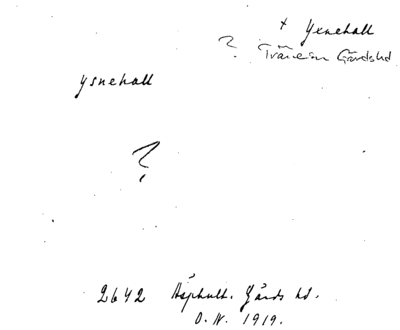 + Yxnehall
? Träne sn Gärds hd
Ysnehall
?
2642 Äsphult. Gärds hd.
O.N. 1919.